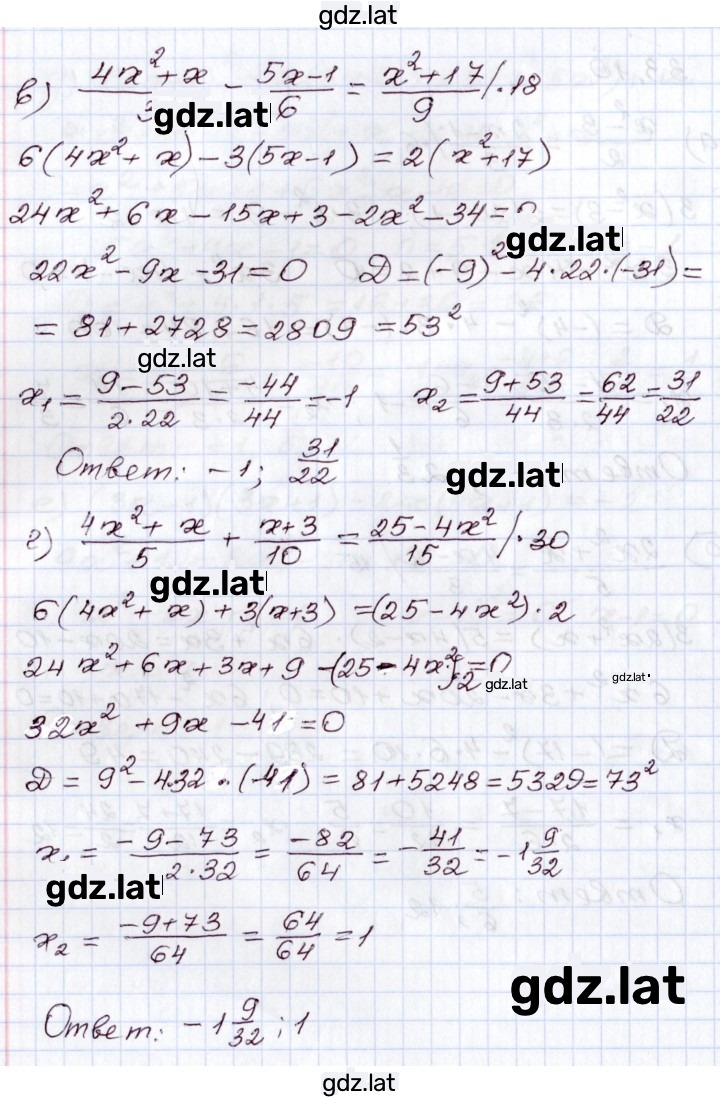 gdz.lat
в) (4x²+x)/3 - (5x-1)/6 = (x²+17)/9 /·18
gdz.lat
6(4x²+x)-3(5x-1)=2(x²+17)
24x²+6x-15x+3-2x²-34=0
gdz.lat
22x²-9x-31=0 Д=(-9)²-4·22·(-31)=
=81+2728=2809=53²
gdz.lat
x₁=(9-53)/(2·22)=(-44)/44=-1 x₂=(9+53)/44=62/44=31/22
Ответ: -1; 31/22
gdz.lat
г) (4x²+x)/5 + (x+3)/10 = (25-4x²)/15 /·30
gdz.lat
6(4x²+x)+3(x+3)=(25-4x²)·2
24x²+6x+3x+9-(25-4x²)·2=0
gdz.lat gdz.lat
32x²+9x-41=0
Д=9²-4·32·(-41)=81+5248=5329=73²
x₁=(-9-73)/(2·32)=(-82)/64=-41/32=-1 9/32
gdz.lat
x₂=(-9+73)/64=64/64=1
gdz.lat
Ответ: -1 9/32; 1
gdz.lat